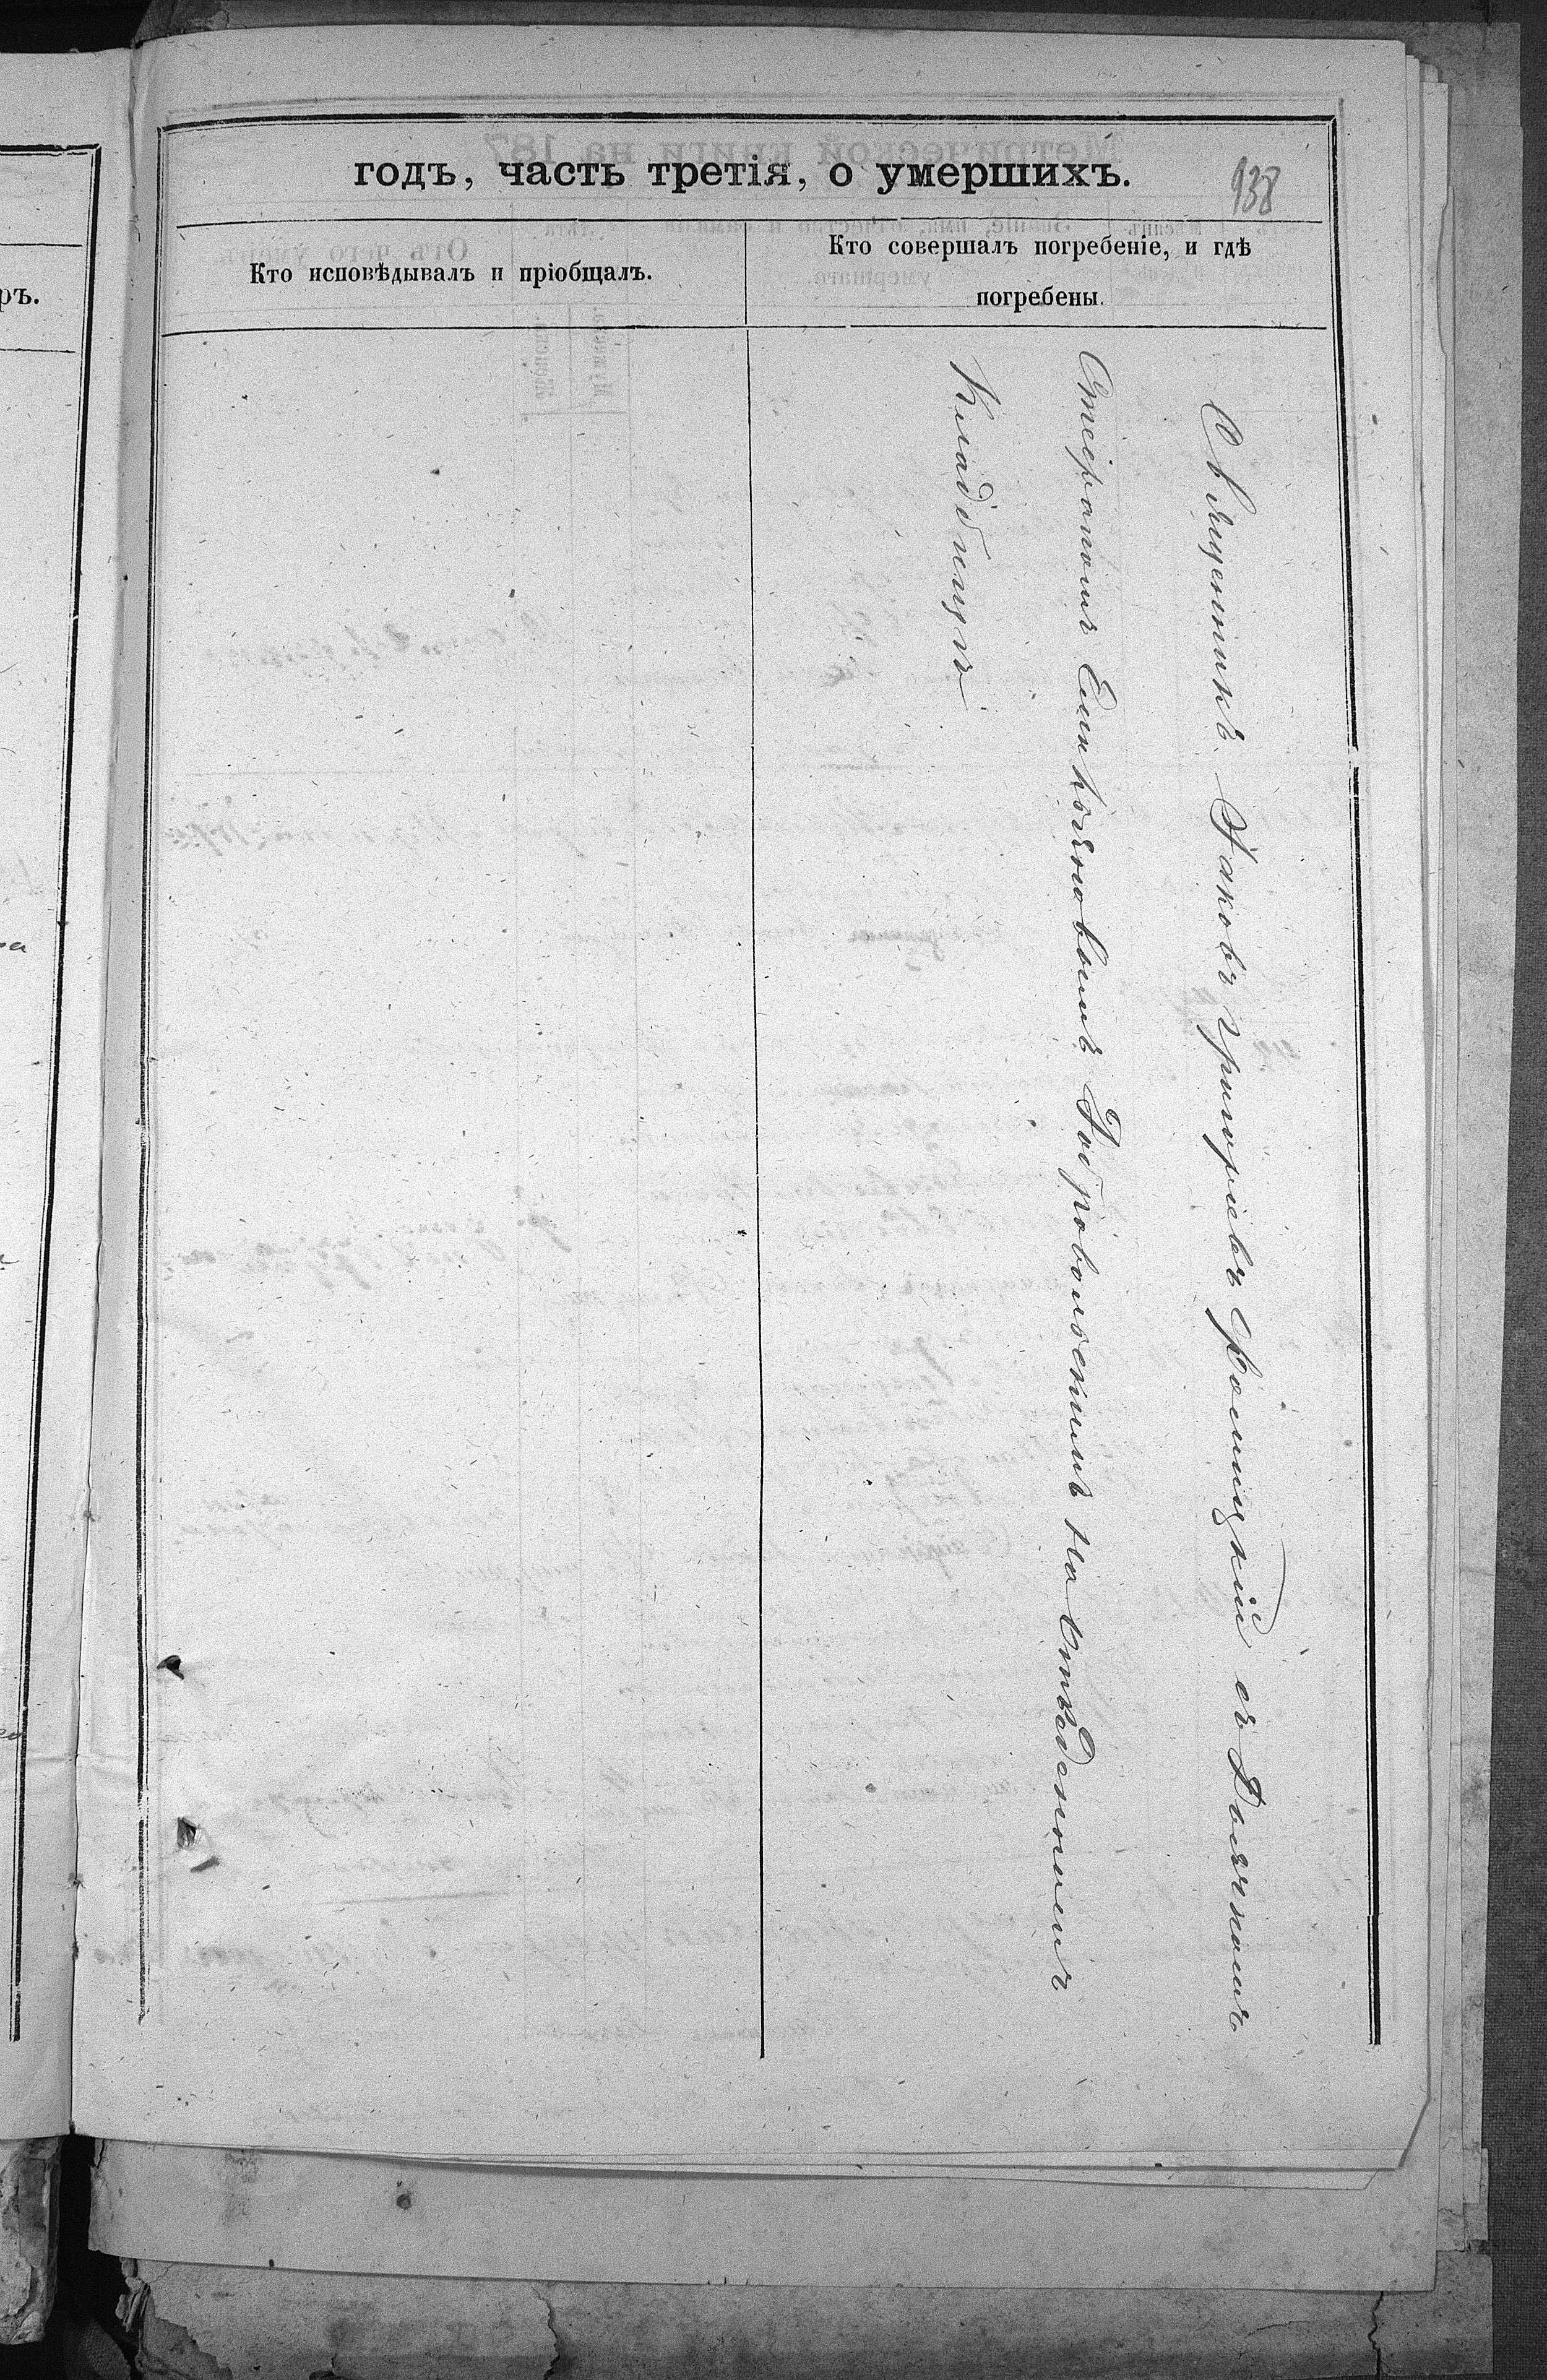 годъ, часть третія, о умершихъ.
138
Кто исповѣдывалъ и пріобщалъ.
Кто совершалъ погребеніе, и гдѣ
погребены.
Священникъ Іаковъ Григоріевъ съ Дьячкомъ
Стефаномъ Добровольскимъ на
Кладбищѣ
ръ.